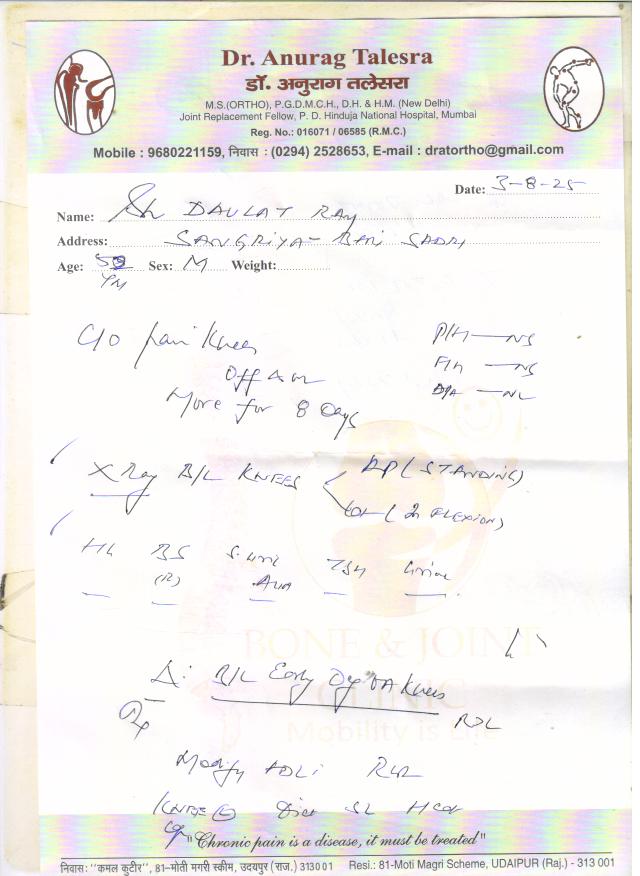 Dr. Anurag Talesra
डॉ. अनुराग तलेसरा
M.S.(ORTHO), P.G.D.M.C.H., D.H. & H.M. (New Delhi)
Joint Replacement Fellow, P. D. Hinduja National Hospital, Mumbai
Reg. No.: 016071 / 06585 (R.M.C.)
Mobile : 9680221159, निवास : (0294) 2528653, E-mail : dratortho@gmail.com
Date: 3-8-25
Name: Sh DAULAT RAM
Address: SANGRIYA - BARI SADRI
Age: Sex: M Weight:
C/O Pain Knees
Off & on
More for 8 Days
X Ray B/L KNEES AP (STANDING)
Lat (In FLEXION)
Hb BS S. Uric TSH Urine
(R)
BONE & JOINT
CLINIC
Mobility is Life
Δ: B/L Early Deg OA Knees
Rx
Modify ADL
KNEE Diet
"Chronic pain is a disease, it must be treated"
निवास: "कमल कुटीर", 81-मोती मगरी स्कीम, उदयपुर (राज.) 313001 Resi.: 81-Moti Magri Scheme, UDAIPUR (Raj.) - 313 001